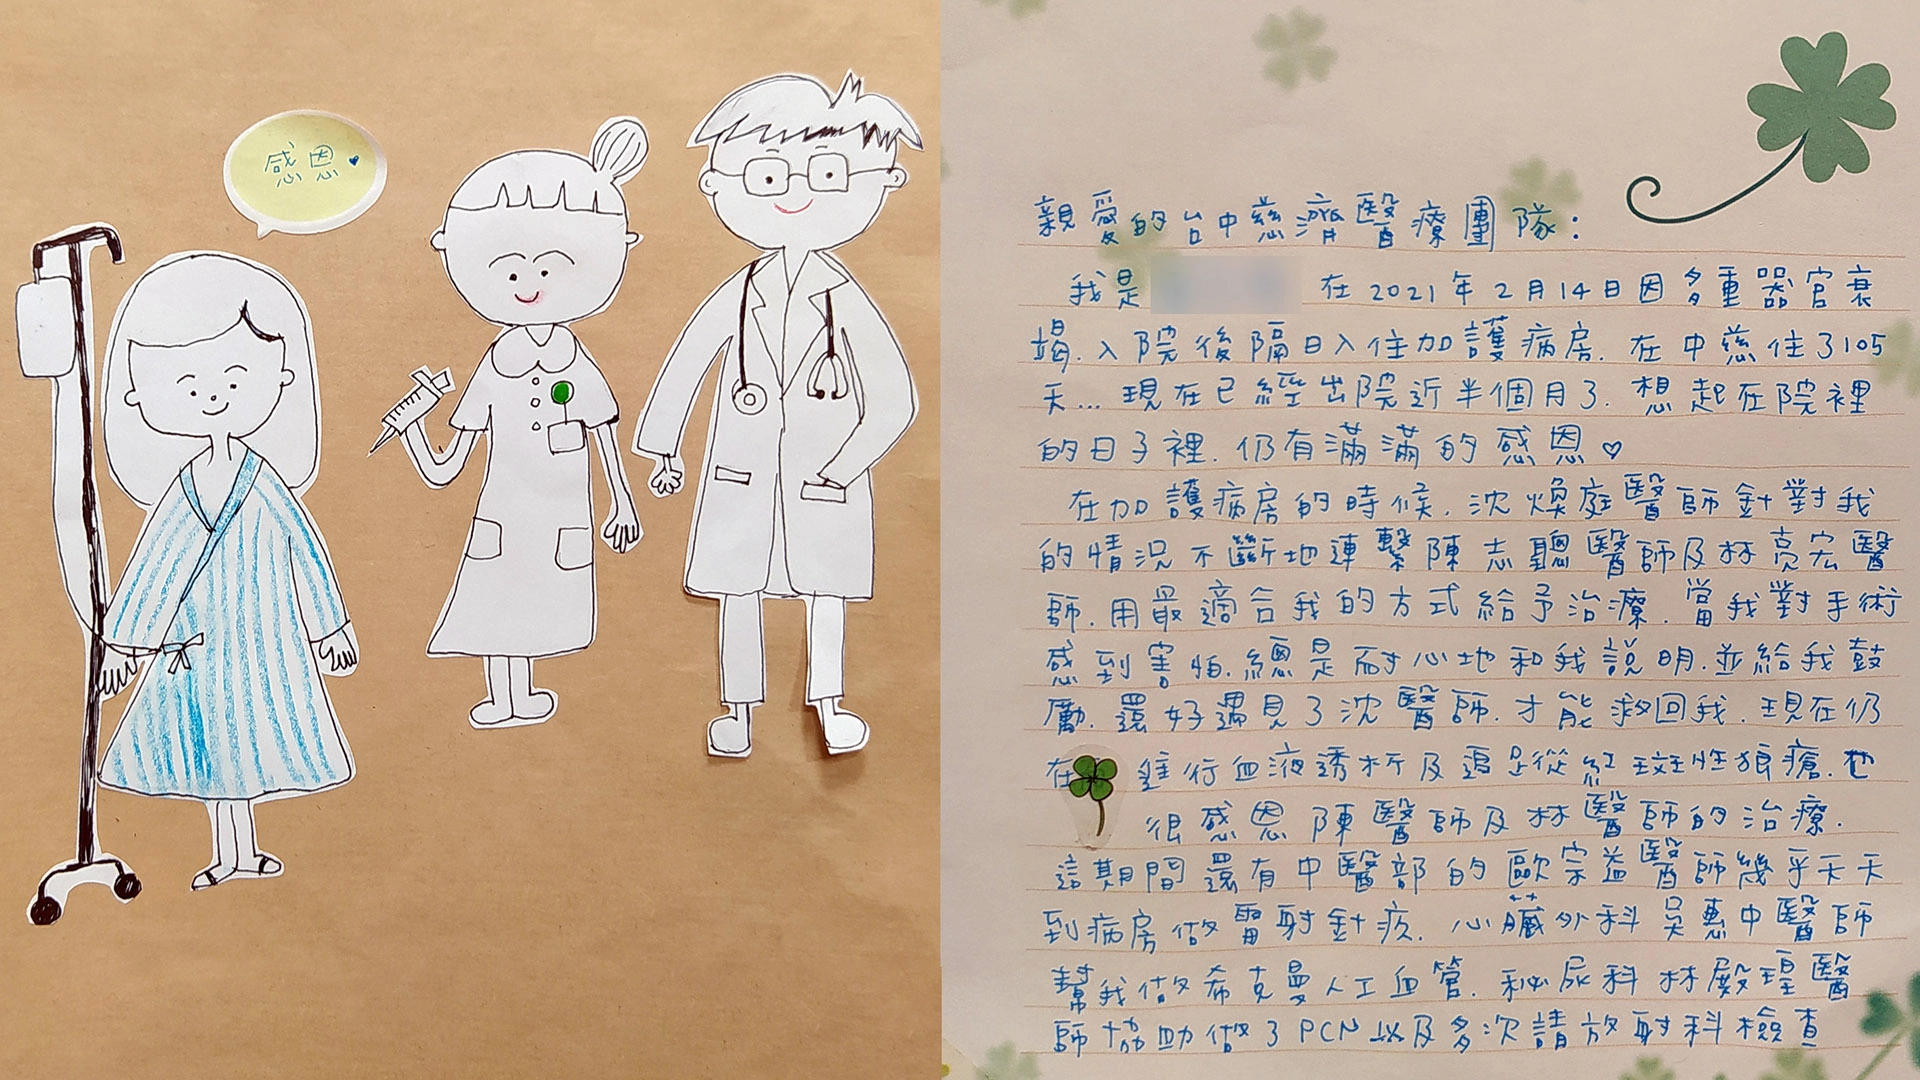 感恩
親愛的台中慈濟醫療團隊：
我是 在2021年2月14日因多重器官衰
竭.入院後隔日入住加護病房.在中慈住了105
天...現在已經出院近半個月了.想起在院裡
的日子裡.仍有滿滿的感恩♡
在加護病房的時候.沈煥庭醫師針對我
的情況不斷地連繫陳志聰醫師及林亮宏醫
師.用最適合我的方式給予治療.當我對手術
感到害怕.總是耐心地和我說明.並給我鼓
勵.還好遇見了沈醫師.才能救回我.現在仍
在 進行血液透析及追足從紅斑性狼瘡.也
很感恩陳醫師及林醫師的治療.
這期間還有中醫部的歐宗益醫師幾乎天天
到病房做雷射針灸.心臟外科吳惠中醫師
幫我做希克曼人工血管.秘尿科林殿瑝醫
師協助做了PCN以及多次請放射科檢查